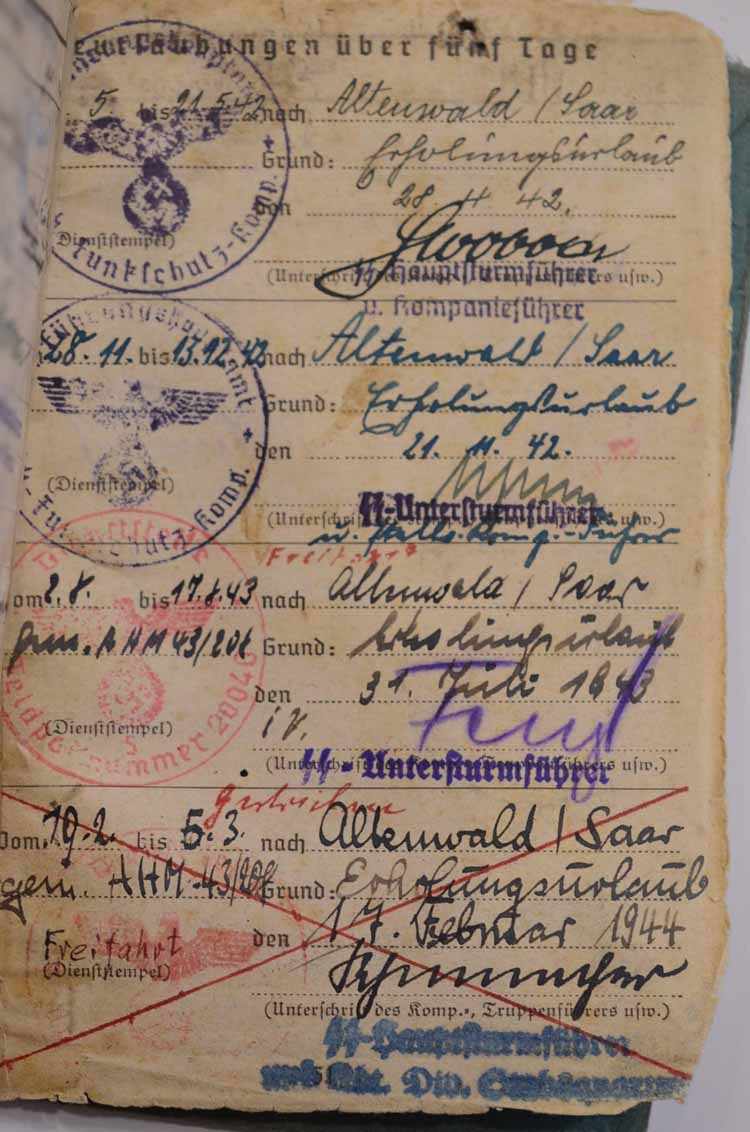 eurlaubungen über fünf Tage
5. bis 21.5.42 nach Altenwald / Saar
Grund: Erholungsurlaub
den 28 4 42.
(Dienststempel)
Funkschutz-Komp.
(Unterschrift des Komp.-, Truppenführers usw.)
SS-Hauptsturmführer
u. Kompanieführer
Führungshauptamt
28.11. bis 13.12.42 nach Altenwald / Saar
Grund: Erholungsurlaub
den 21. 11. 42.
(Dienststempel)
SS-Funkschutz-Komp.
(Unterschrift des Komp.-, Truppenführers usw.)
SS-Untersturmführer
u. Komp.-Führer
Freifahrt
vom 2.8. bis 17.8.43 nach Altenwald / Saar
gem. A H M 43/208 Grund: Erholungsurlaub
den 31. Juli 1943
(Dienststempel) i.V.
Feldpostnummer 20040
(Unterschrift des Komp.-, Truppenführers usw.)
SS-Untersturmführer
Gestrichen
Vom 19.2. bis 5.3. nach Altenwald / Saar
gem. AHM-43/208 Grund: Erholungsurlaub
den 17. Februar 1944
Freifahrt
(Dienststempel)
(Unterschrift des Komp.-, Truppenführers usw.)
SS-Hauptsturmführer